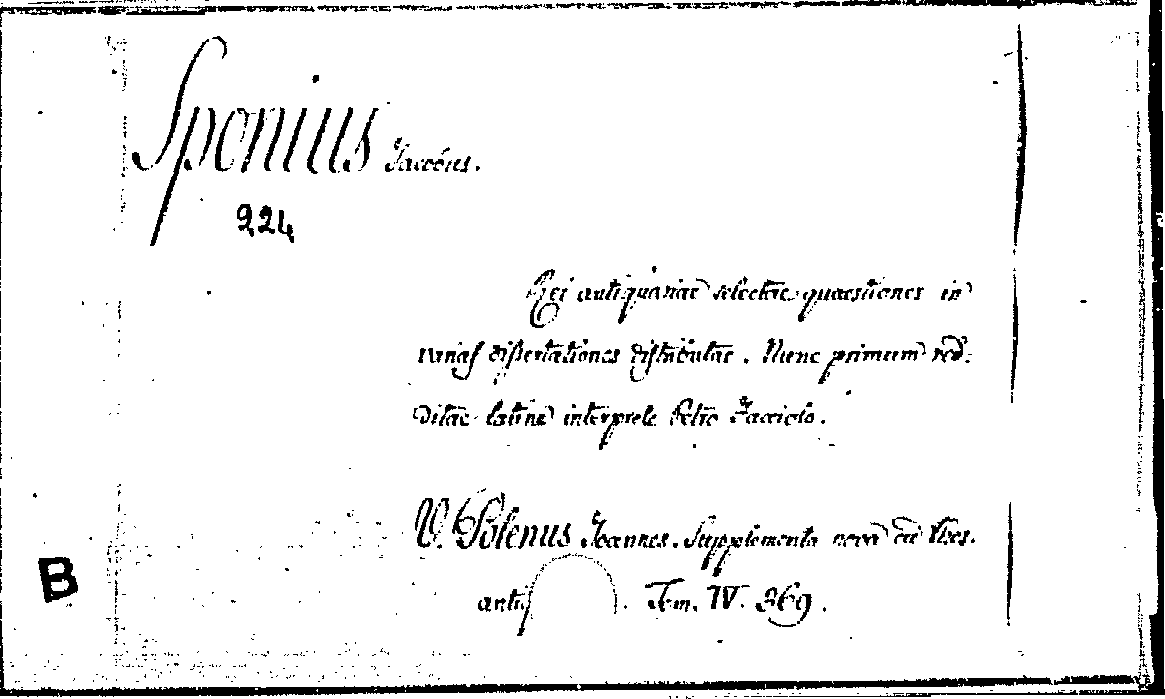 Sponius Jacobus.
224
Rei antiquariae selectae quaestiones in
varias dissertationes distributae. Nunc primum red-
ditae latine interprete Petro Facciolo.
V. Polenus Joannes. Supplementa nova ad Thes.
antiq . Tom. IV. 869.
B